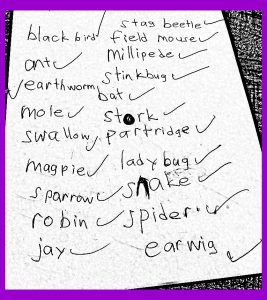 stag beetle ✓
black bird ✓ field mouse ✓
ant ✓ millipede ✓
stinkbug ✓
✓ earthworm bat ✓
mole ✓ stork ✓
swallow ✓ partridge ✓
magpie ✓ ladybug ✓
sparrow ✓ snake ✓
robin ✓ spider ✓
jay ✓ earwig ✓